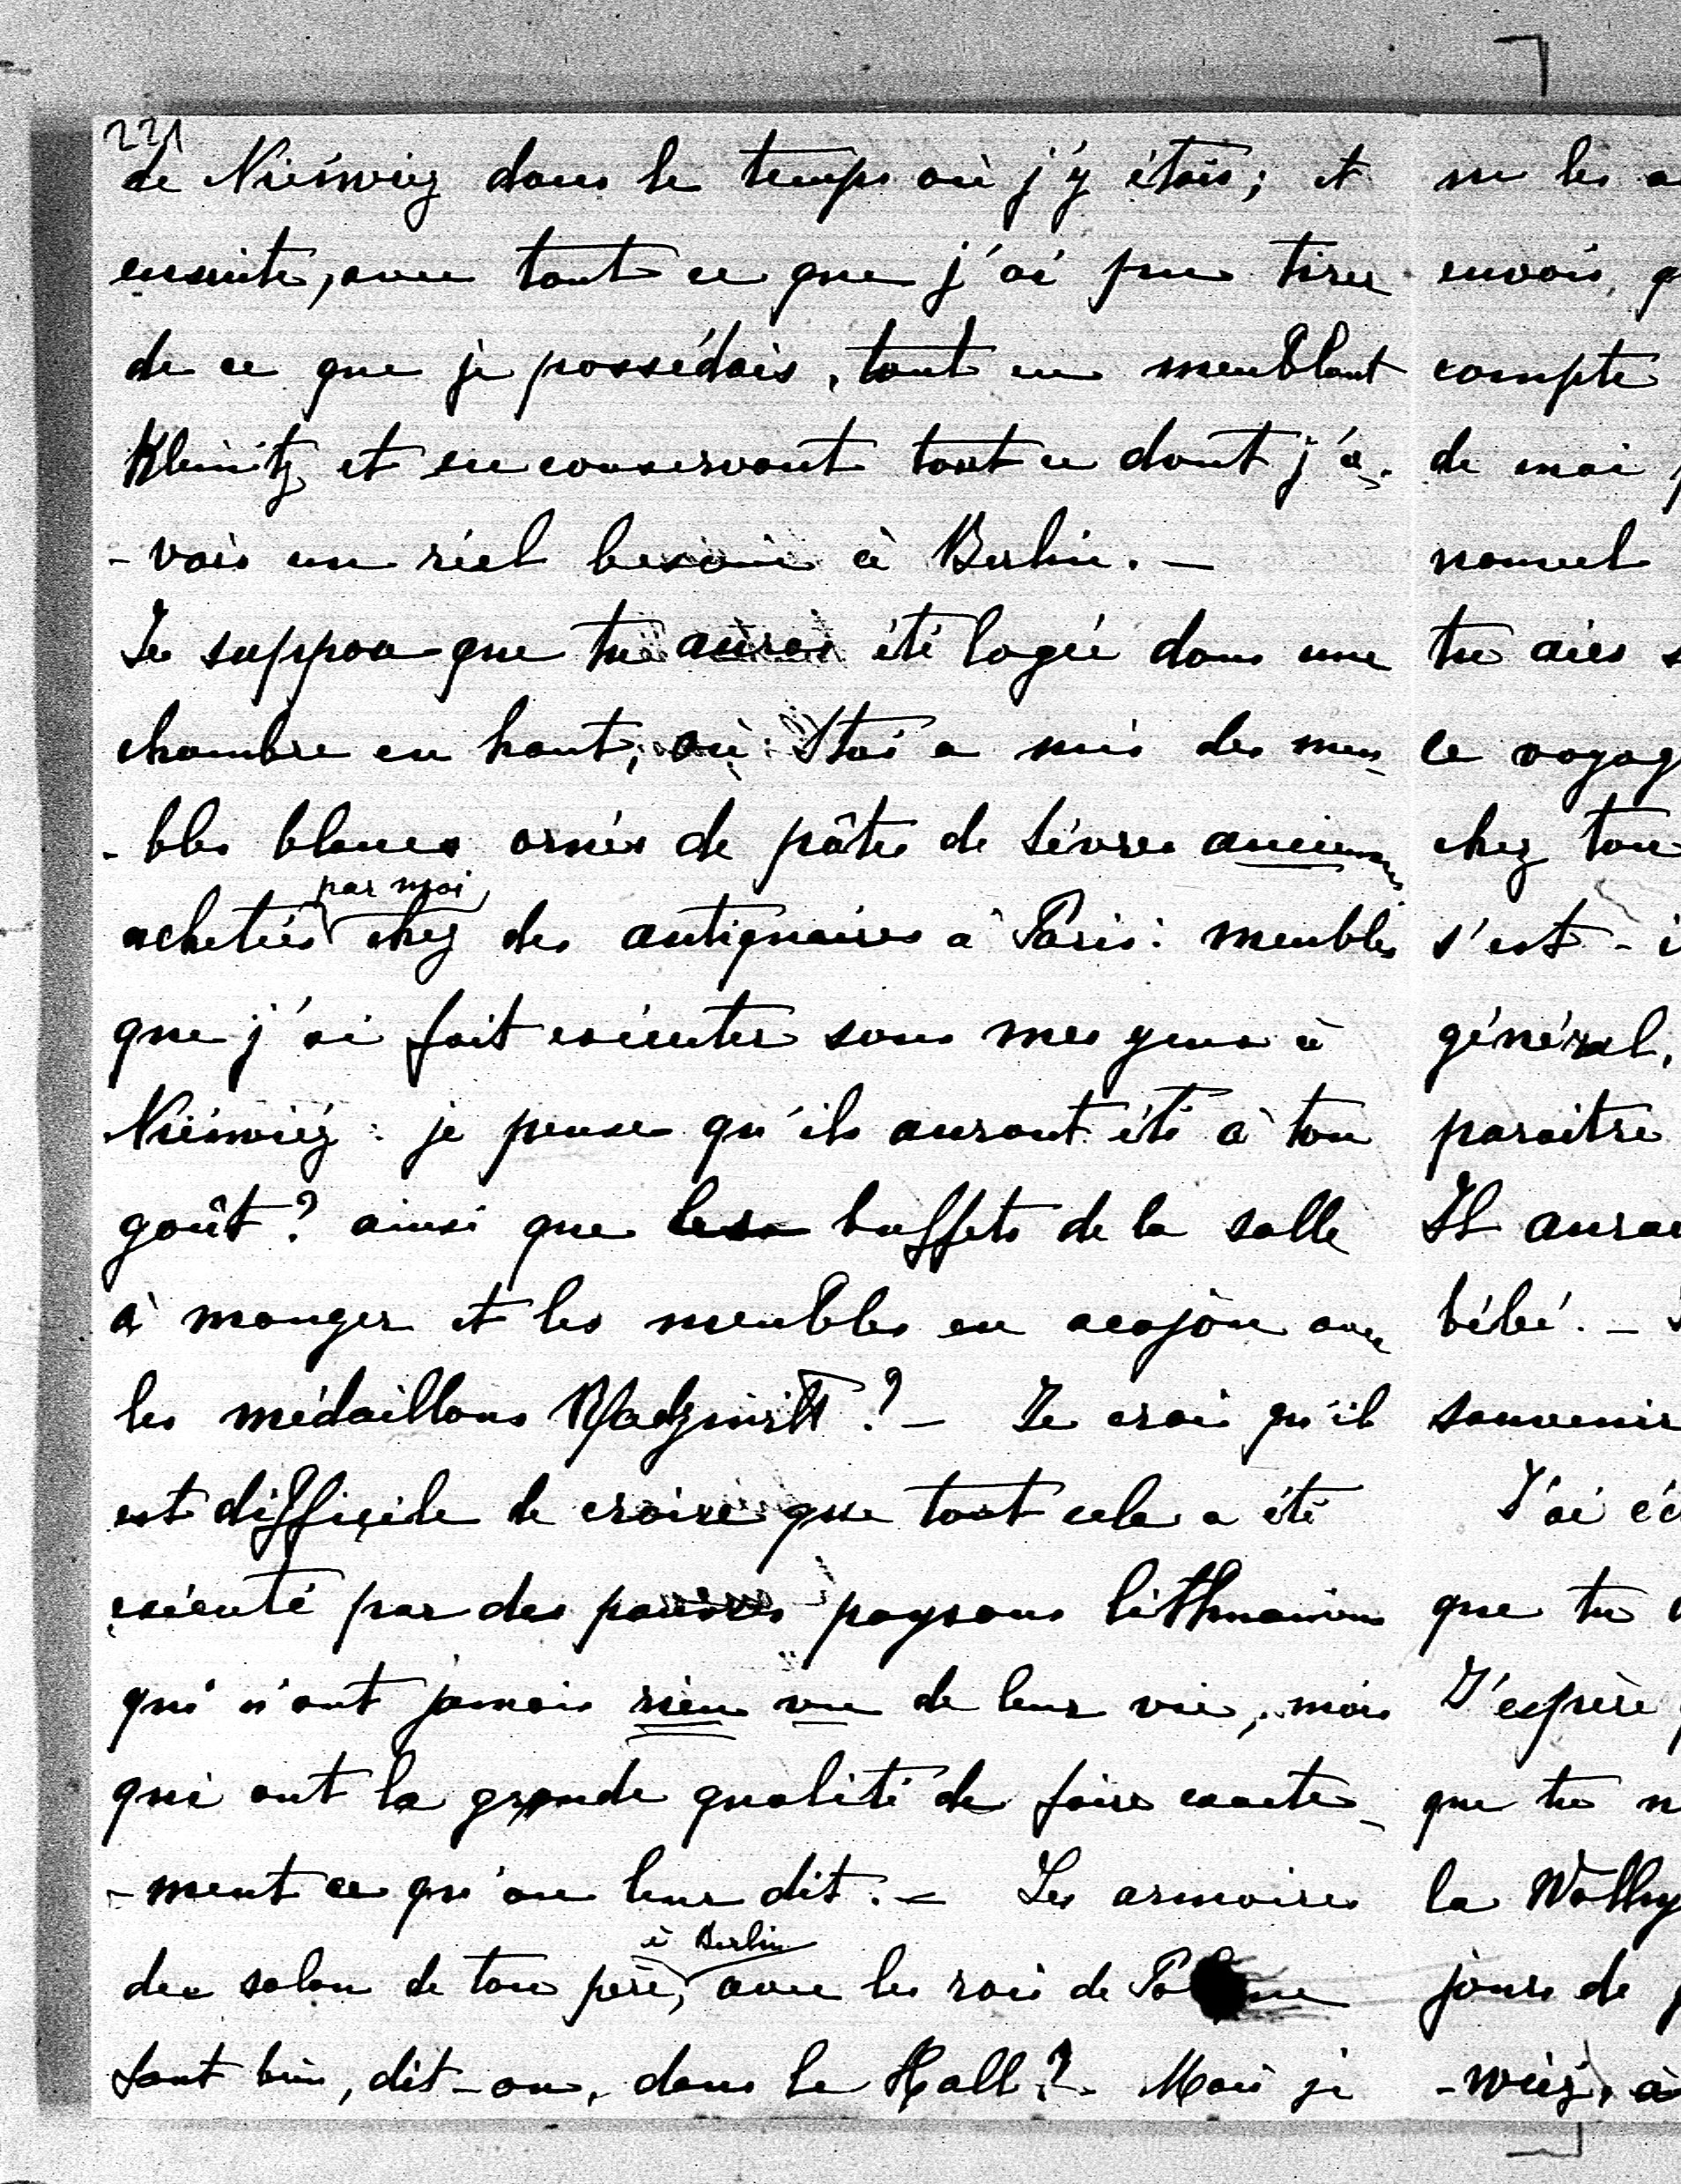 221
de Nieśwież dans le temps où j'y étais; et
ensuite, avec tout ce que j'ai pu tirer
de ce que je possédais, tout en meublant
Kleinitz et en conservant tout ce dont j'a-
-vais un réel besoin à Berlin. —
Je suppose que tu auras été logée dans une
chambre en haut, où Stas a mis des meu-
-bles blancs ornés de pâtes de Sèvres anciennes
par moi
achetées chez des antiquaires à Paris: meubles
que j'ai fait exécuter sous mes yeux à
Nieświéz: je pense qu'ils auront été à ton
goût? ainsi que les buffets de la salle
à manger et les meubles en acajou avec
les médaillons Radziwill? — Je crois qu'il
est difficile de croire que tout cela a été
exécuté par des pauvres paysans lithuaniens
qui n'ont jamais rien vu de leur vie, mais
qui ont la grande qualité de faire exacte-
-ment ce qu'on leur dit. — Les armoires
à Berlin
du salon de ton père, avec les rois de Pologne
sont bien, dit-on, dans le Hall? Mais je
ne les
envois,
compte
de moi
nouvel
tu aies
ce voyag
chez ton
s'est-i
général,
paraitre
Il aurai
bébé. —
souvenir
J'ai éc
que tu
J'espère
que tu n
la Wolhy
jours de
-wiéż, à